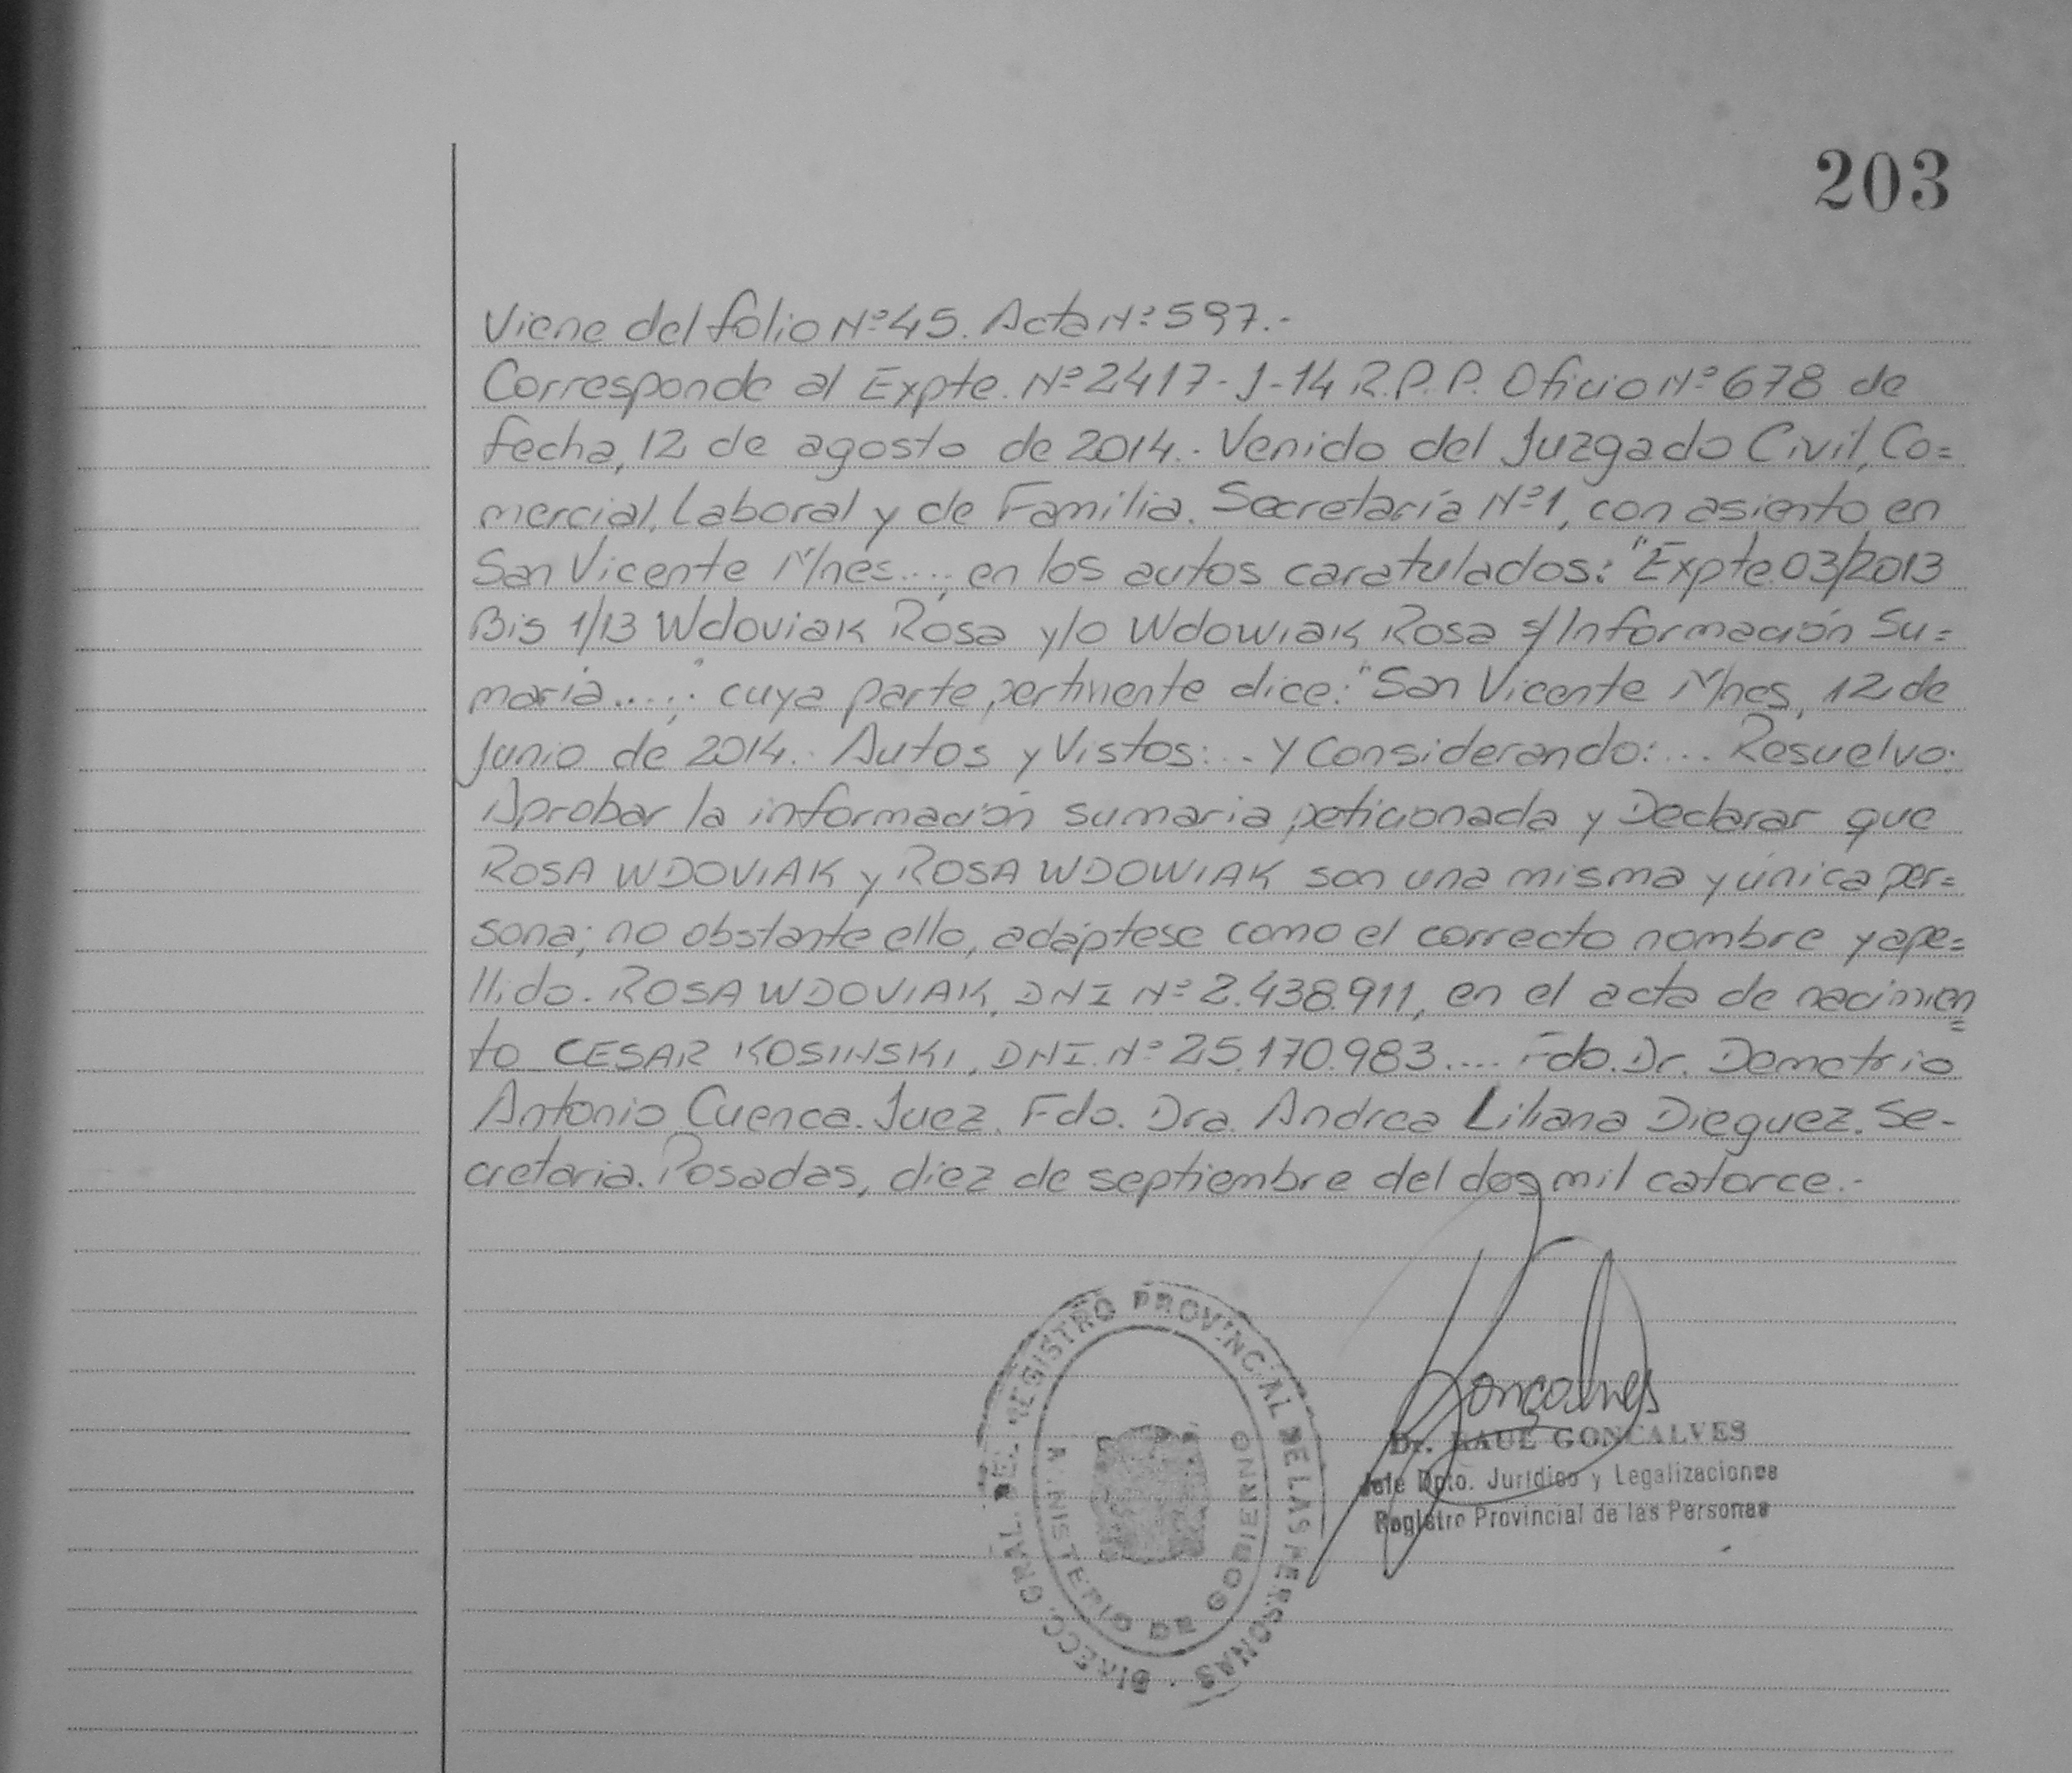 203
Viene del folio Nº 45. Acta Nº 597.-
Corresponde al Expte. Nº 2417-J-14 R.P.P. Oficio Nº 678 de
fecha, 12 de agosto de 2014.- Venido del Juzgado Civil, Co=
mercial, Laboral y de Familia. Secretaría Nº 1, con asiento en
San Vicente Mnes...; en los autos caratulados: "Expte. 03/2013
Bis 1/13 Wdoviak Rosa y/o Wdowiak Rosa s/Información Su=
maria...."; cuya parte pertinente dice: "San Vicente Mnes, 12 de
Junio de 2014.- Autos y Vistos:... Y Considerando:... Resuelvo:
Aprobar la información sumaria peticionada y Declarar que
ROSA WDOVIAK y ROSA WDOWIAK son una misma y única per=
sona; no obstante ello, adáptese como el correcto nombre y ape=
llido. ROSA WDOVIAK, DNI Nº 2.438.911, en el acta de nacimien=
to CESAR KOSINSKI, DNI. Nº 25.170.983.... Fdo. Dr. Demetrio
Antonio Cuenca. Juez. Fdo. Dra. Andrea Liliana Dieguez. Se-
cretaria. Posadas, diez de septiembre del dos mil catorce.-
DIRECC. GRAL. DEL REGISTRO PROVINCIAL DE LAS PERSONAS
MINISTERIO DE GOBIERNO
Goncalves
Dr. RAUL GONCALVES
Jefe Dpto. Jurídico y Legalizaciones
Registro Provincial de las Personas